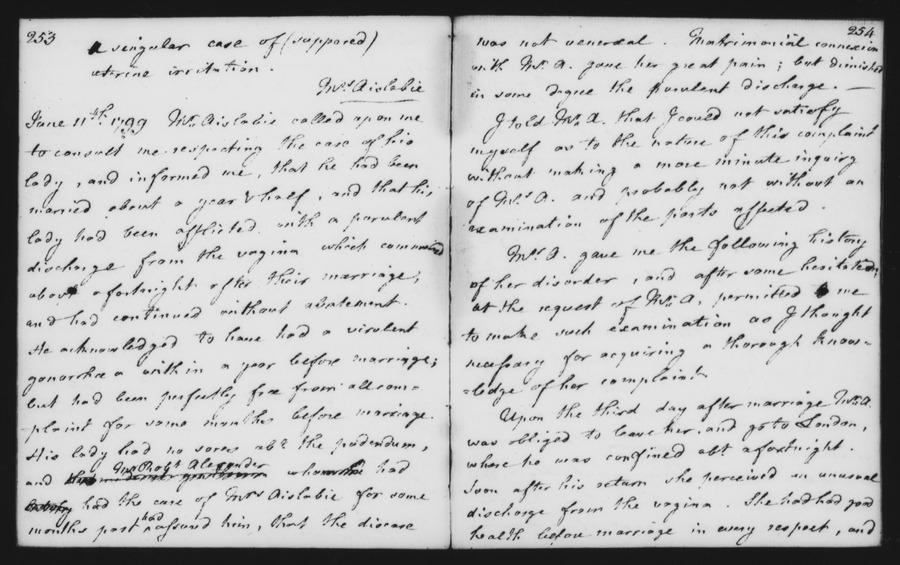 253
A singular case of (supposed)
uterine irritation.
Mrs. Aislabie
June 11th. 1799 Mr. Aislabie called upon me
to consult me respecting the case of his
lady, and informed me, that he had been
married about a year & half, and that his
lady had been afflicted with a purulent
discharge from the vagina which commenced
about a fortnight after their marriage;
and had continued without abatement.
He acknowledged to have had a virulent
gonorrhœa within a year before marriage;
but had been perfectly free from all com=
plaint for some months before marriage.
His lady had no sores abt. the pudendum,
and Mr. Robt. Alexander who had
had the care of Mrs Aislabie for some
months past had assured him, that the disease
254
was not venereal. Matrimonial connexion
with Mr. A. gave her great pain; but diminished
in some degree the purulent discharge. —
I told Mr. A. that I could not satisfy
myself as to the nature of this complaint
without making a more minute inquiry
of Mrs. A. and probably not without an
examination of the parts affected.
Mrs. A. gave me the following history
of her disorder, and after some hesitation,
at the request of Mr. A, permitted me
to make such examination as I thought
necessary for acquiring a thorough know=
=ledge of her complaint
Upon the third day after marriage Mr. A.
was obliged to leave her, and go to London,
where he was confined abt a fortnight.
Soon after his return she perceived an unusual
discharge from the vagina. She had had good
health before marriage in every respect, and